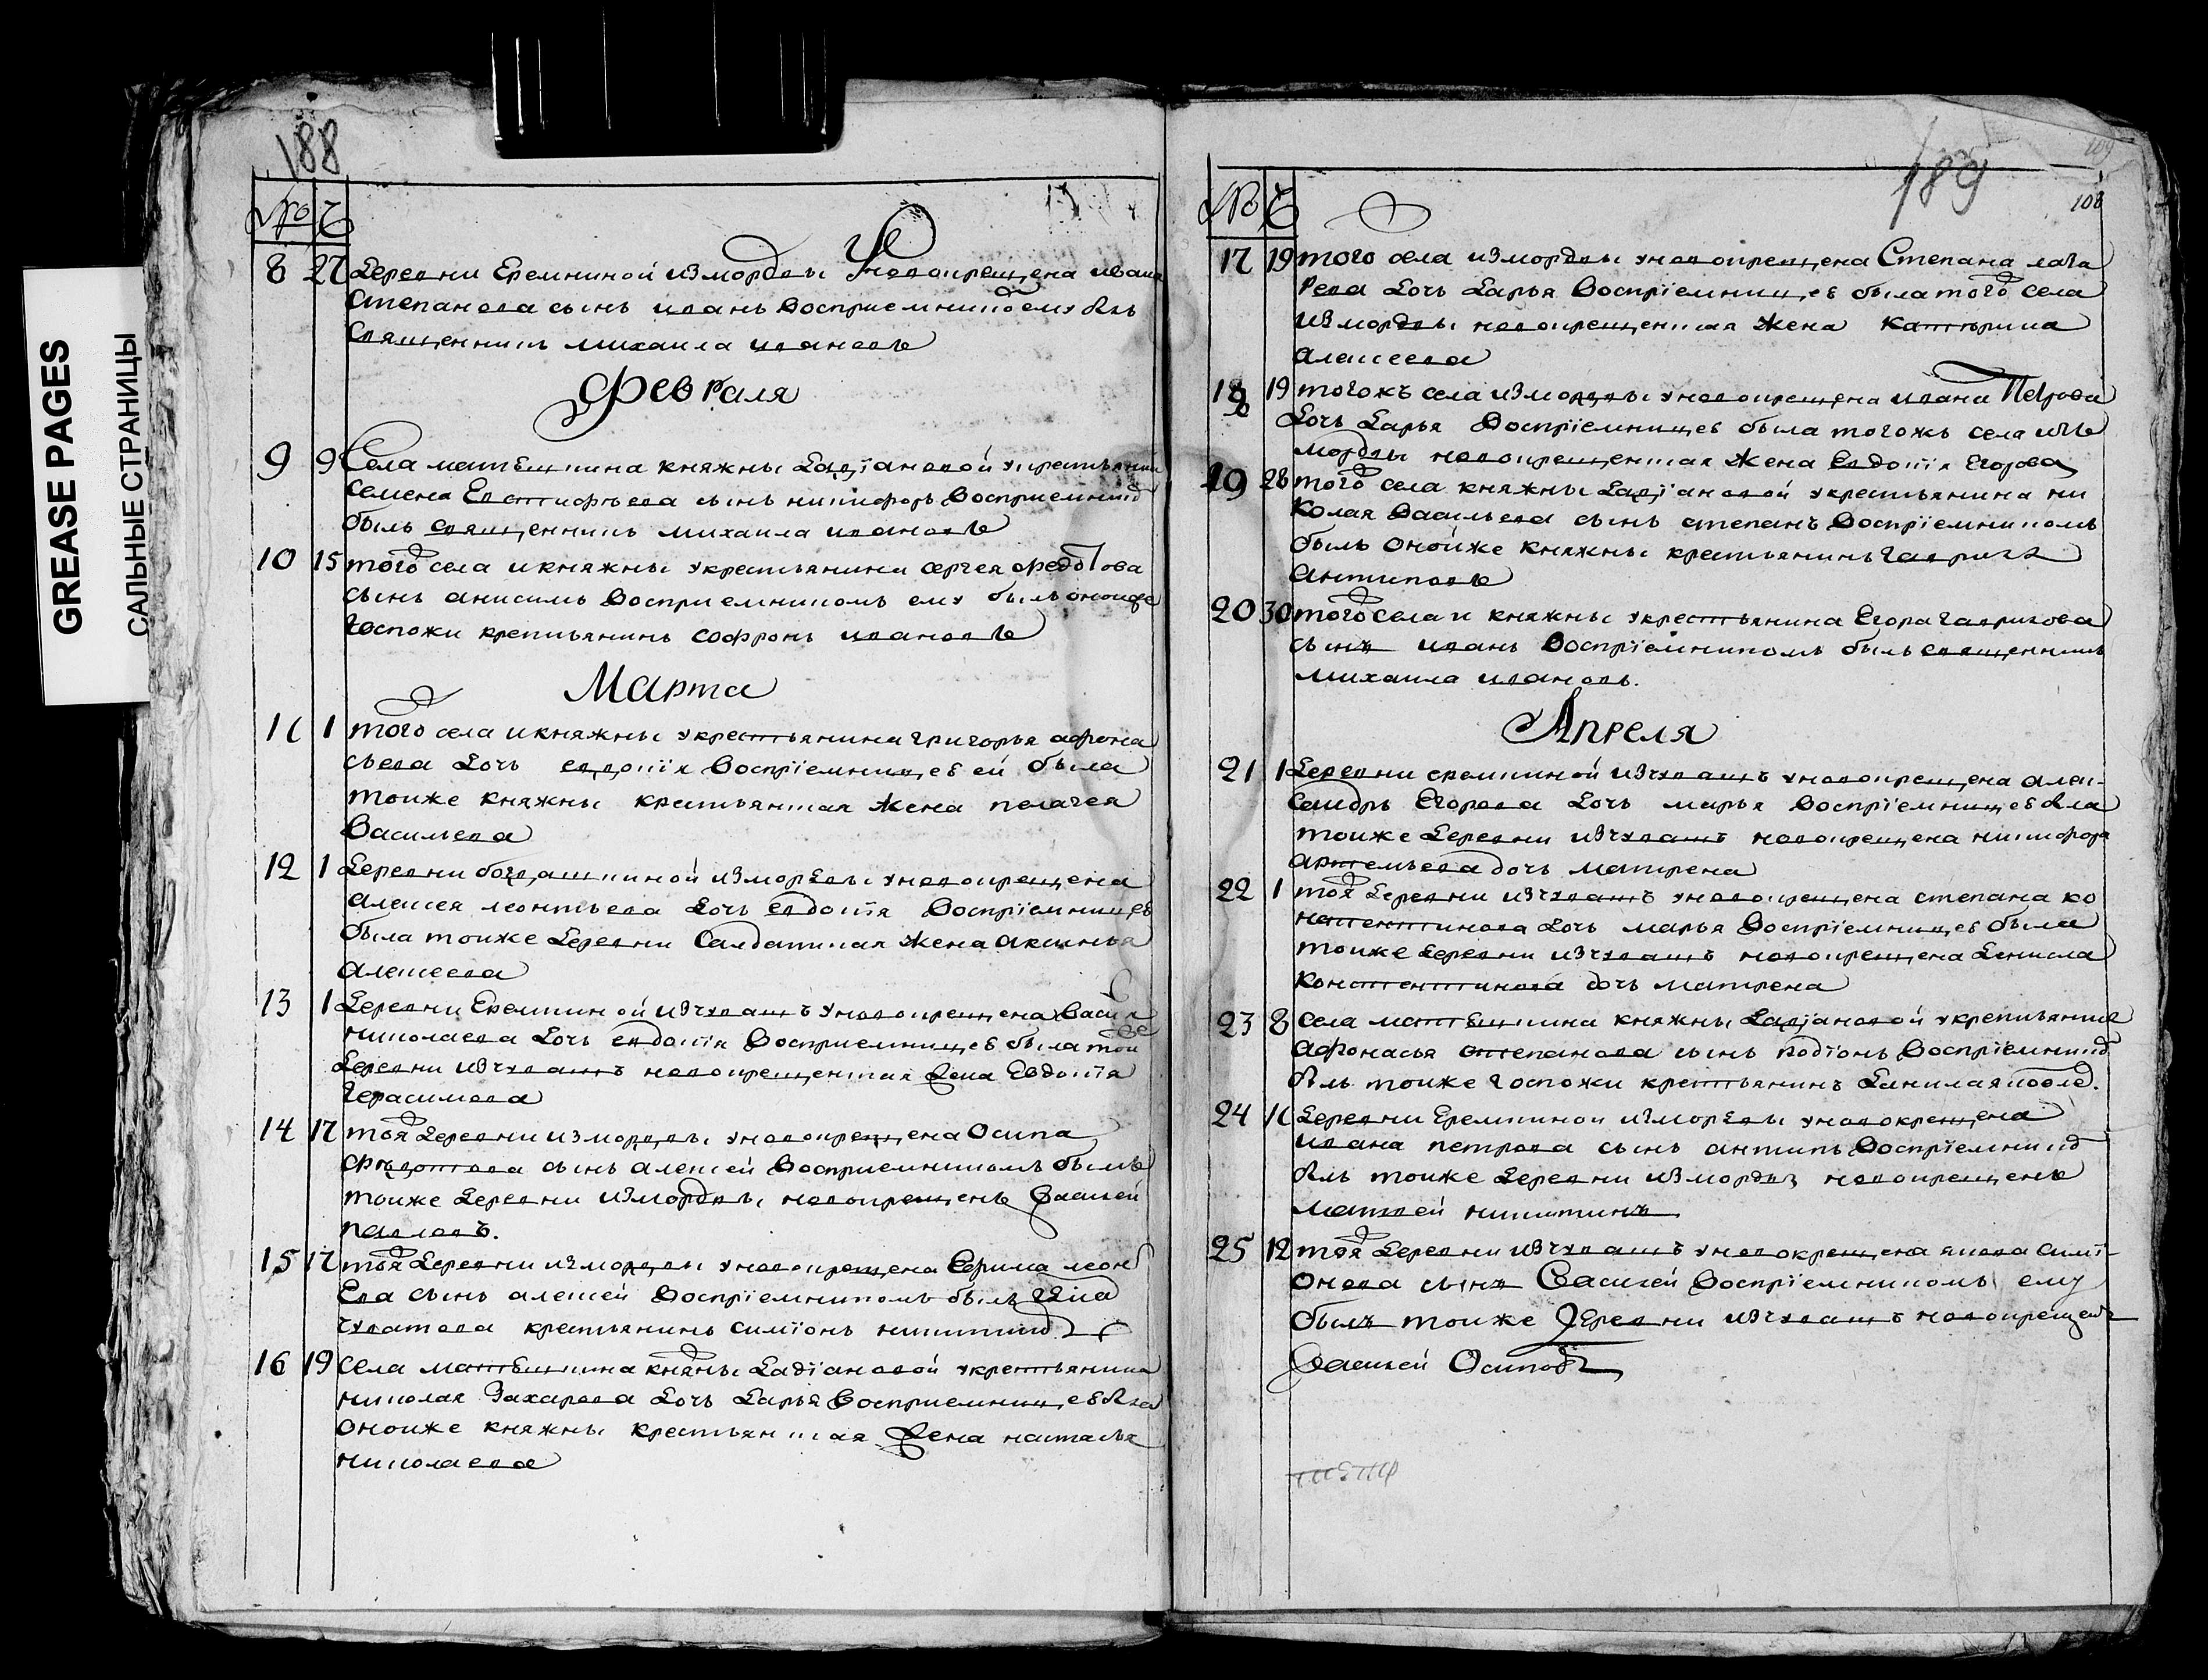 GREASE PAGES
САЛЬНЫЕ СТРАНИЦЫ
188
№ Ч
8 27 Деревни Еремкиной из мордвы у новокрещена ивана
Степанова сынъ иванъ Восприемником ему был
Священникъ михаила ивановъ
Февраля
9 9 Села княжны Кадіановой у крестьянина
Семена Евстифѣева сынъ никифоръ Восприемник
былъ священникъ михаила ивановъ
10 15 того села и княжны у крестьянина сергея федотова
сынъ анисимъ Восприемникомъ ему былъ оной же
госпожи крестьянинъ софронъ ивановъ
Марта
11 1 того села и княжны у крестьянина григорья афона
сьева дочь евдокія Воспріемницею ей была
тоиже княжны крестьянская жена пелагея
Васильева
12 1 Деревни богдашкиной из мордвы у новокрещена
алексея леонтьева дочь евдокія Воспріемницею
была тоиже деревни Салдатская жена аксинья
алексеева
13 1 Деревни Еремкиной ис чувашъ у новокрещена Васил
николаева дочь евдокія Восприемницею была тои же
деревни ис чувашъ новокрещенская жена Евдокѣя
герасимова
14 17 тоя деревни из мордвы у новокрещена Осипа
федотова сынъ алексей Восприемникомъ былъ
тоиже деревни из мордвы новокрещенъ Василей
павловъ.
15 17 тоя деревни из мордвы у новокрещена Ефима леон
Ева сынъ алексей Воспріемникомъ былъ
крестьянинъ симіонъ никитинъ
16 19 Села княжны Кадіановой у крестьянина
николая Захарова дочь дарья Восприемницею была
оноиже княжны крестьянская жена настасья
николаева
189
109
108
№ Ч
17 19 того села из мордвы у новокрещена Степана лаза
Рева дочь дарья Воспріемницею была того села
из мордвы новокрещенская жена Катѣрина
алексеева
18 19 тогожъ села из мордвы у новокрещена ивана Петрова
дочь дарья Воспріемницею была тогожъ села изъ
мордвы новокрещенская жена Евдокія Егорова
19 28 того села княжны Кадіановой у крестьянина ни
Колая Васильева сынъ степанъ Воспріемникомъ
былъ Оной же княжны крестьянинъ гаврила
антиповъ
20 30 того села и княжны у крестьянина Егора гаврилова
сынъ иванъ Воспріемникомъ былъ священникъ
михаила ивановъ.
Апреля
21 1 Деревни еремкиной ис чувашъ у новокрещена алек-
сандръ Егорова дочь марья Воспріемницею была
тоиже деревни ис чувашъ новокрещена никифора
артемьева дочь матрена
22 1 тоя деревни ис чувашъ у новокрещена степана ко
нстентинова дочь марья Воспріемницею была
тоиже деревни ис чувашъ новокрещена дениса
Констентинова дочь матрена
23 8 Села княжны Кадіановой у крестьянина
афонасья степанова сынъ родіонъ Воспріемник
былъ тоиже госпожи крестьянинъ данила яковле.
24 11 Деревни Еремкиной из мордвы у новокрещена
ивана петрова сынъ антипъ Воспріемник
былъ тоиже деревни из мордвы новокрещенъ
матвей никитинъ
25 12 тоя деревни ис чувашъ у новокрещена якова симі-
онова сынъ Василей Воспріемникомъ ему
былъ тоиже деревни ис чувашъ новокрещенъ
Василей Осиповъ